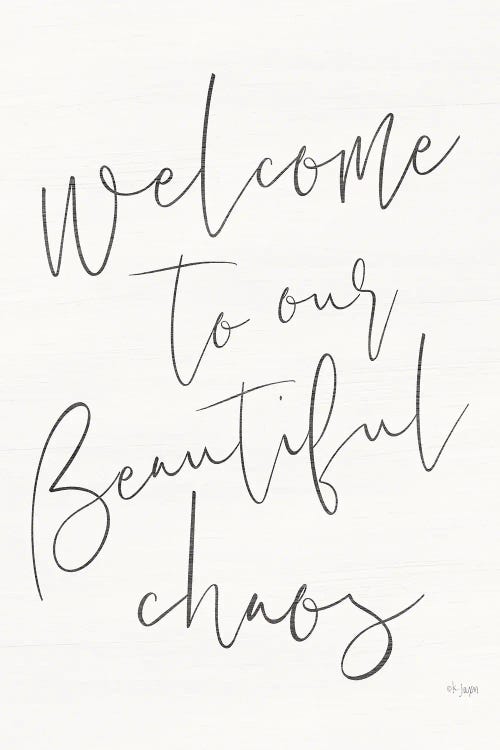 Welcome
to our
Beautiful
chaos
©K. Jaxon